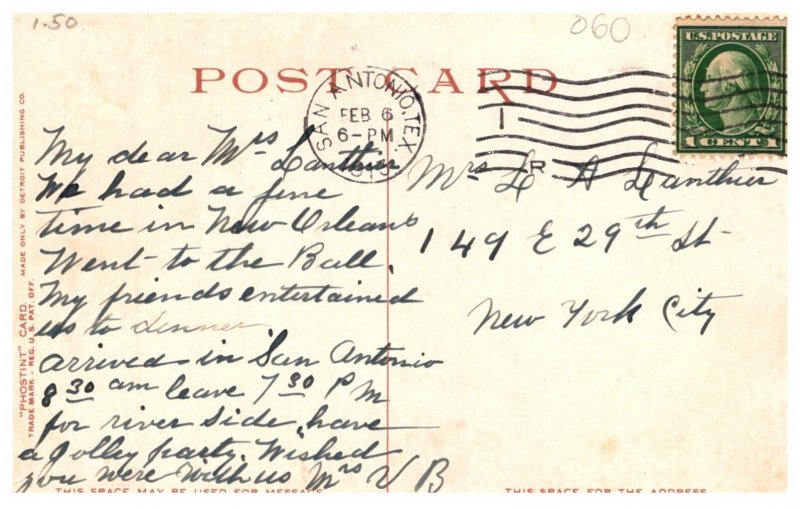 1.50
060
POST CARD
U.S. POSTAGE
1 CENT 1
SAN ANTONIO, TEX.
FEB 6
6-PM
R
My dear Mrs Lanthier
We had a fine
time in New Orleans
Went to the Ball.
My friends entertained
us to dinner
arrived in San Antonio
8 30 am leave 7 30 PM
for river side, have
a jolley party. Wished
you were with us Mrs V B
Mrs L A Lanthier
149 E 29th St
New York City
"PHOSTINT" CARD
TRADE MARK - REG. U.S. PAT. OFF.
MADE ONLY BY DETROIT PUBLISHING CO.
THIS SPACE MAY BE USED FOR MESSAGE
THIS SPACE FOR THE ADDRESS